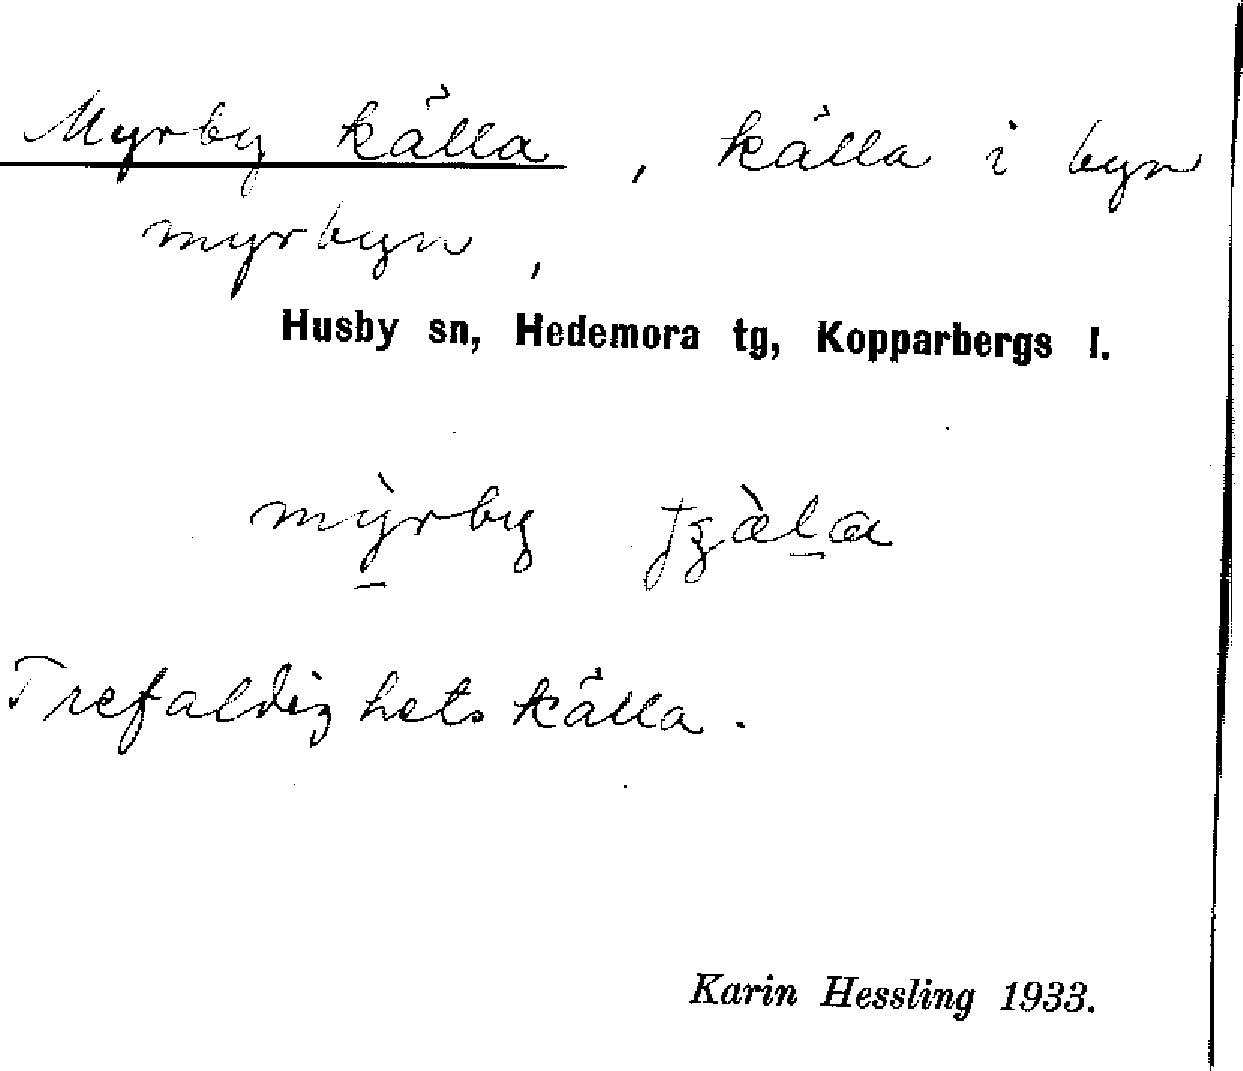 Myrby källa, källa i byn
myrbyn,
Husby sn, Hedemora tg, Kopparbergs l.
mỳrby
Trefaldighets källa.
Karin Hessling 1933.